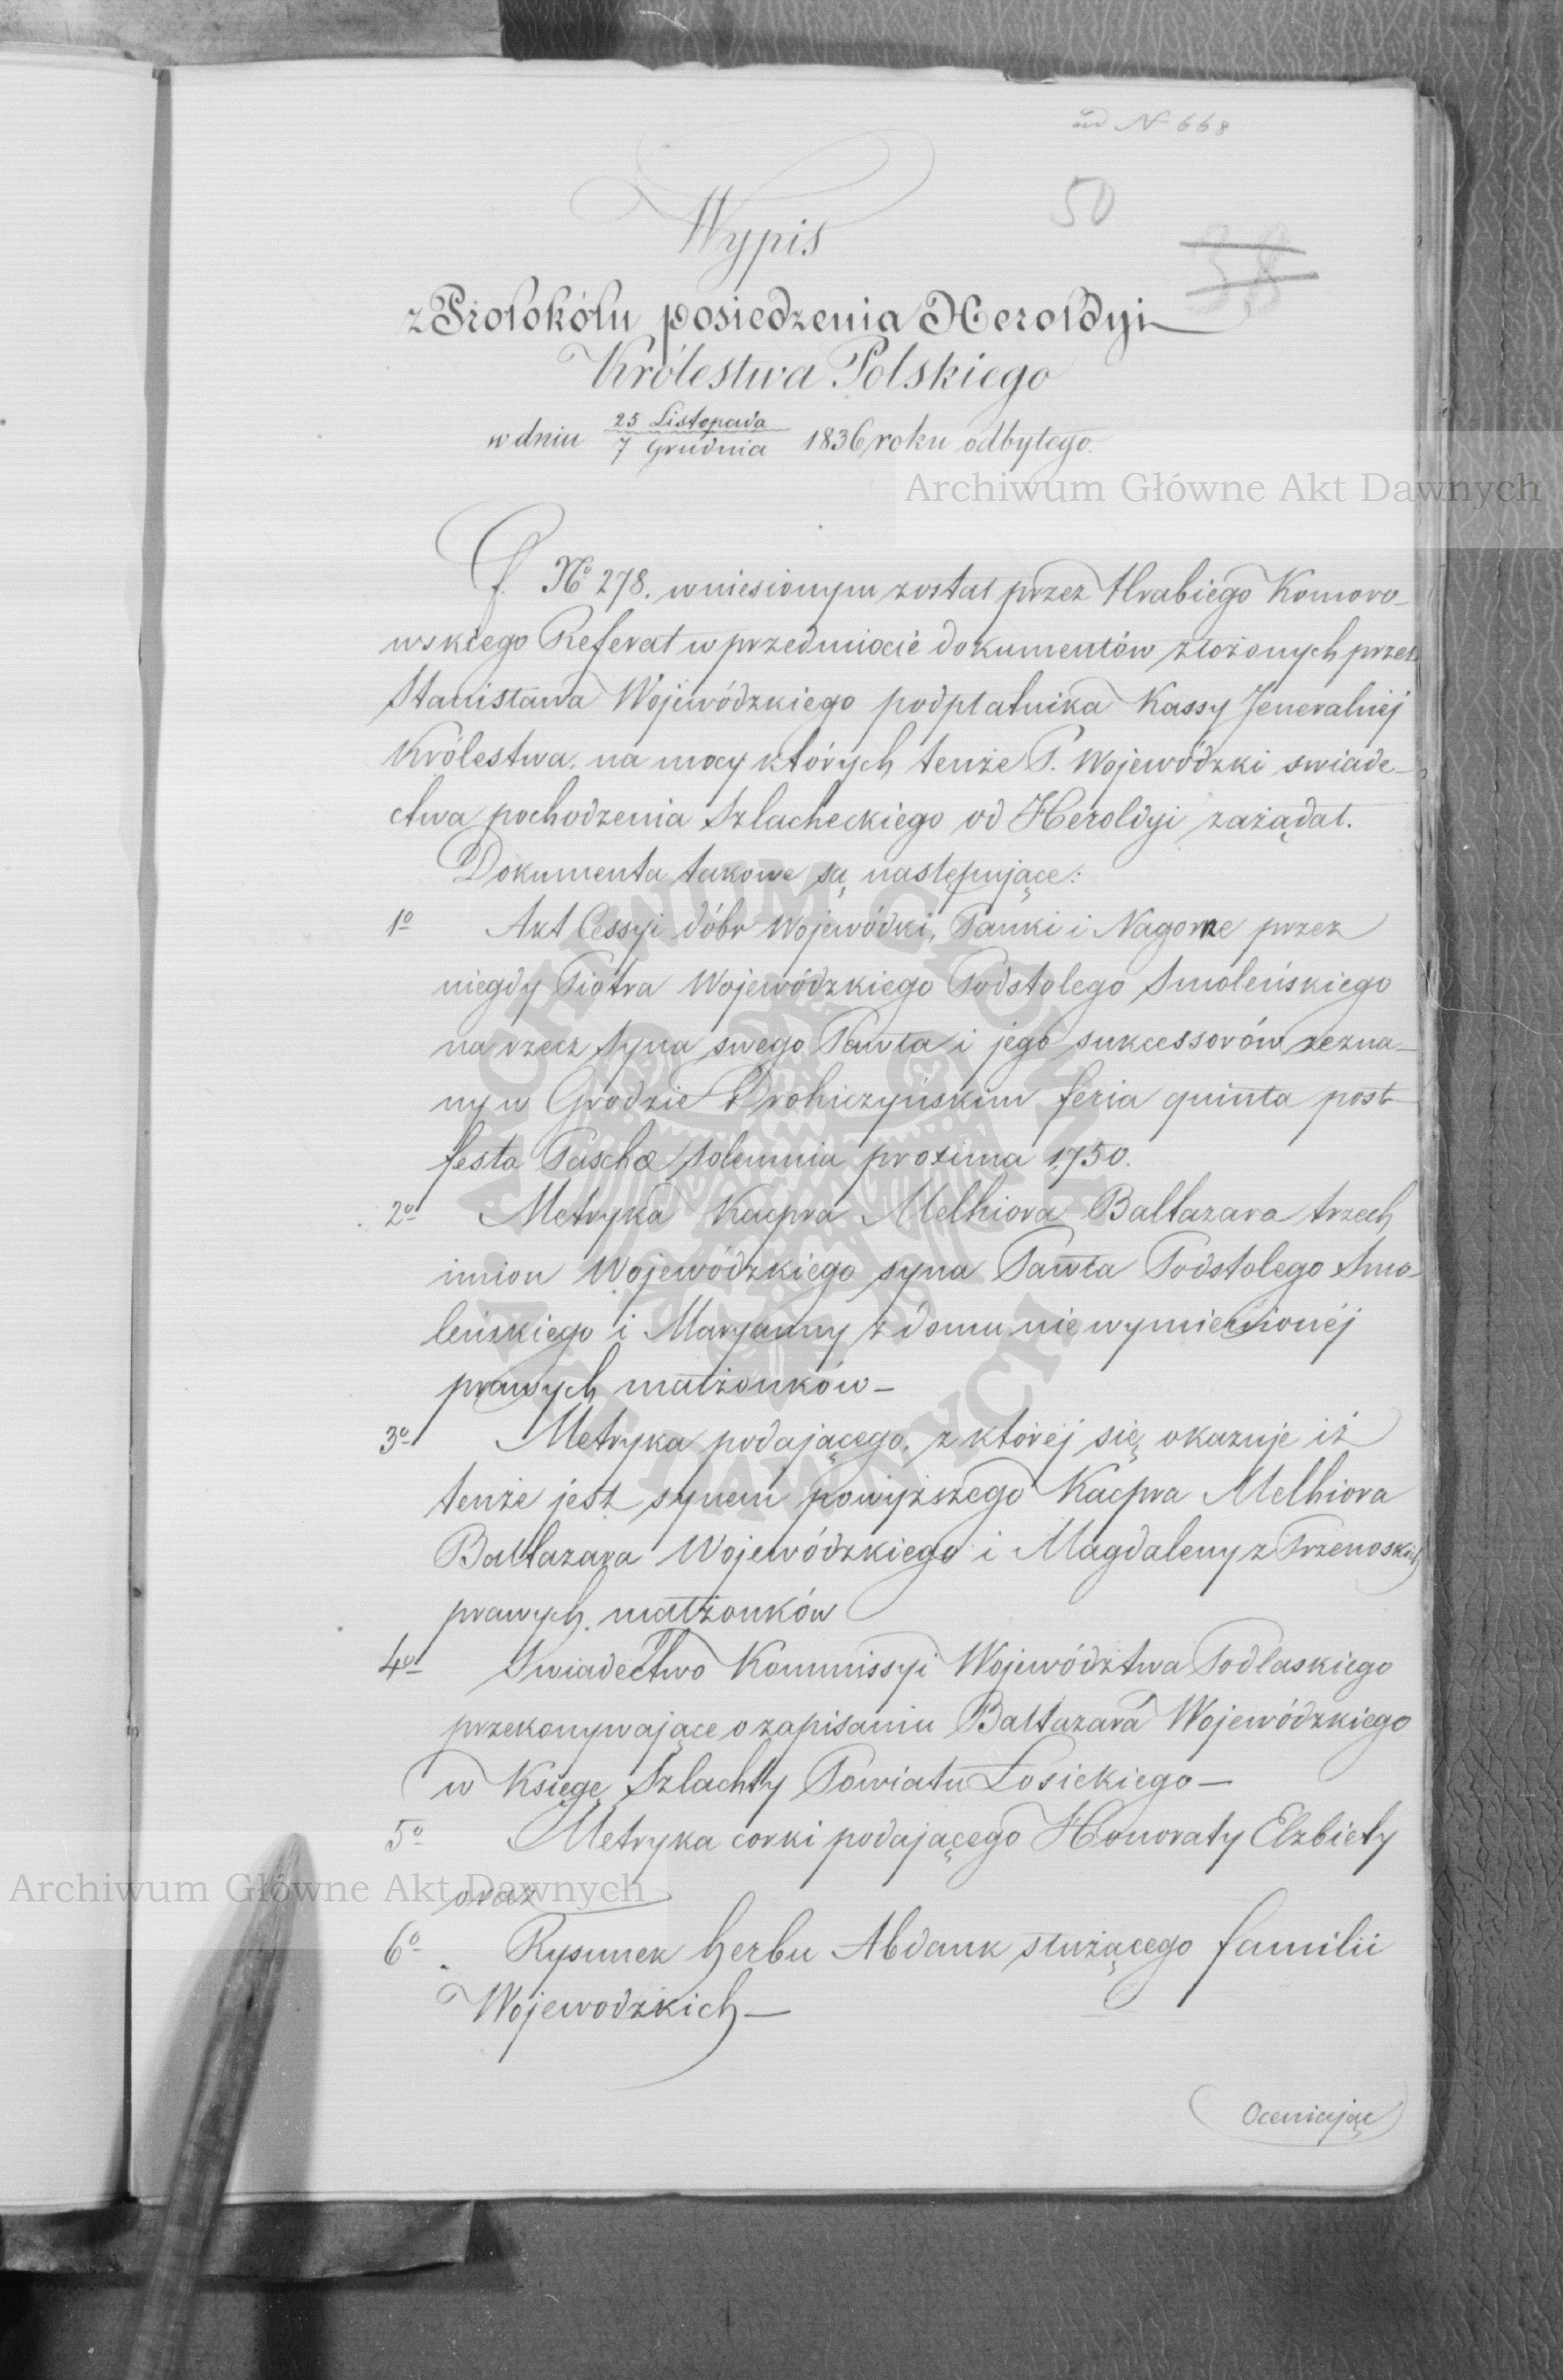 ad N 668
50
38
Wypis
z Protokółu posiedzenia Heroldyi
Królestwa Polskiego
w dniu 25 Listopada / 7 Grudnia 1836 roku odbytego.
Archiwum Główne Akt Dawnych
f. No 278. wniesionym został przez Hrabiego Komoro-
wskiego Referat w przedmiocie dokumentów złożonych przez
Stanisława Wojewódzkiego podpłatnika Kassy Jeneralnéj
Królestwa, na mocy których tenże P. Wojewódzki swiade-
ctwa pochodzenia Szlacheckiego od Heroldyi zażądał.
Dokumenta takowe są następujące:
1o Akt Cessyi dóbr Wojewódki, Panki i Nagorne przez
niegdy Piotra Wojewódzkiego Podstolego Smoleńskiego
na rzecz Syna swego Pawła i jego sukcessorów zezna-
ny w Grodzie Drohiczyńskim feria quinta post
festa Paschæ solemnia proxima 1750.
2o Metryka Kacpra Melhiora Baltazara trzech
imion Wojewódzkiego syna Pawła Podstolego Smo-
leńskiego i Maryanny z domu niewymienionéj
prawych małżonków -
3o Metryka podającego, z któréj się okazuje iż
tenże jest synem powyższego Kacpra Melhiora
Baltazara Wojewódzkiego i Magdaleny z Przenoskich
prawych małżonków
4o Swiadectwo Kommissyi Województwa Podlaskiego
przekonywające o zapisaniu Baltazara Wojewódzkiego
w Księgę Szlachty Powiatu Łosickiego -
5o Metryka corki podającego Honoraty Elzbiety
oraz
Archiwum Główne Akt Dawnych
6o Rysunek herbu Abdank służącego familii
Wojewodzkich -
Oceniając
ARCHIWUM GŁÓWNE AKT DAWNYCH